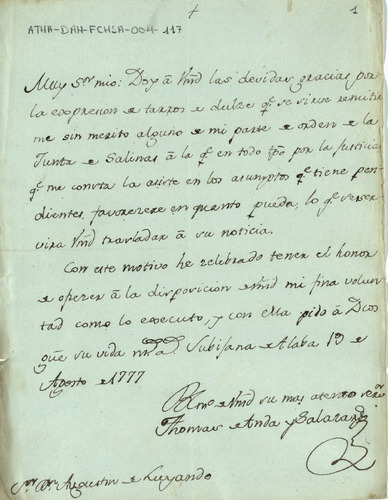 +
1
ATHA-DAH-FCHSA-004-117
Muy Sor mio: Doy â Vmd las devidas gracias por
la expresion e tarros e dulze qe se sirve remitir
me sin merito alguno e mi parte e orden e la
Junta e Salinas â la qe en todo tpo por la justicia
qe me consta la asiste en los asumptos qe tiene pen-
dientes, favorezere en quanto pueda, lo qe se ser-
vira Vmd trasladar â su noticia.
Con este motivo he celebrado tener el honor
e ofrezer â la disposicion e Vmd mi fina volun
tad como lo executo, y con ella pido â Dios
gue su vida ms as Subijana e Alaba 13 e
Agosto e 1777
BLm e Vmd su mas atento servor
Thomas e Anda y Salazar
Sor Dn Augustin e Luyando